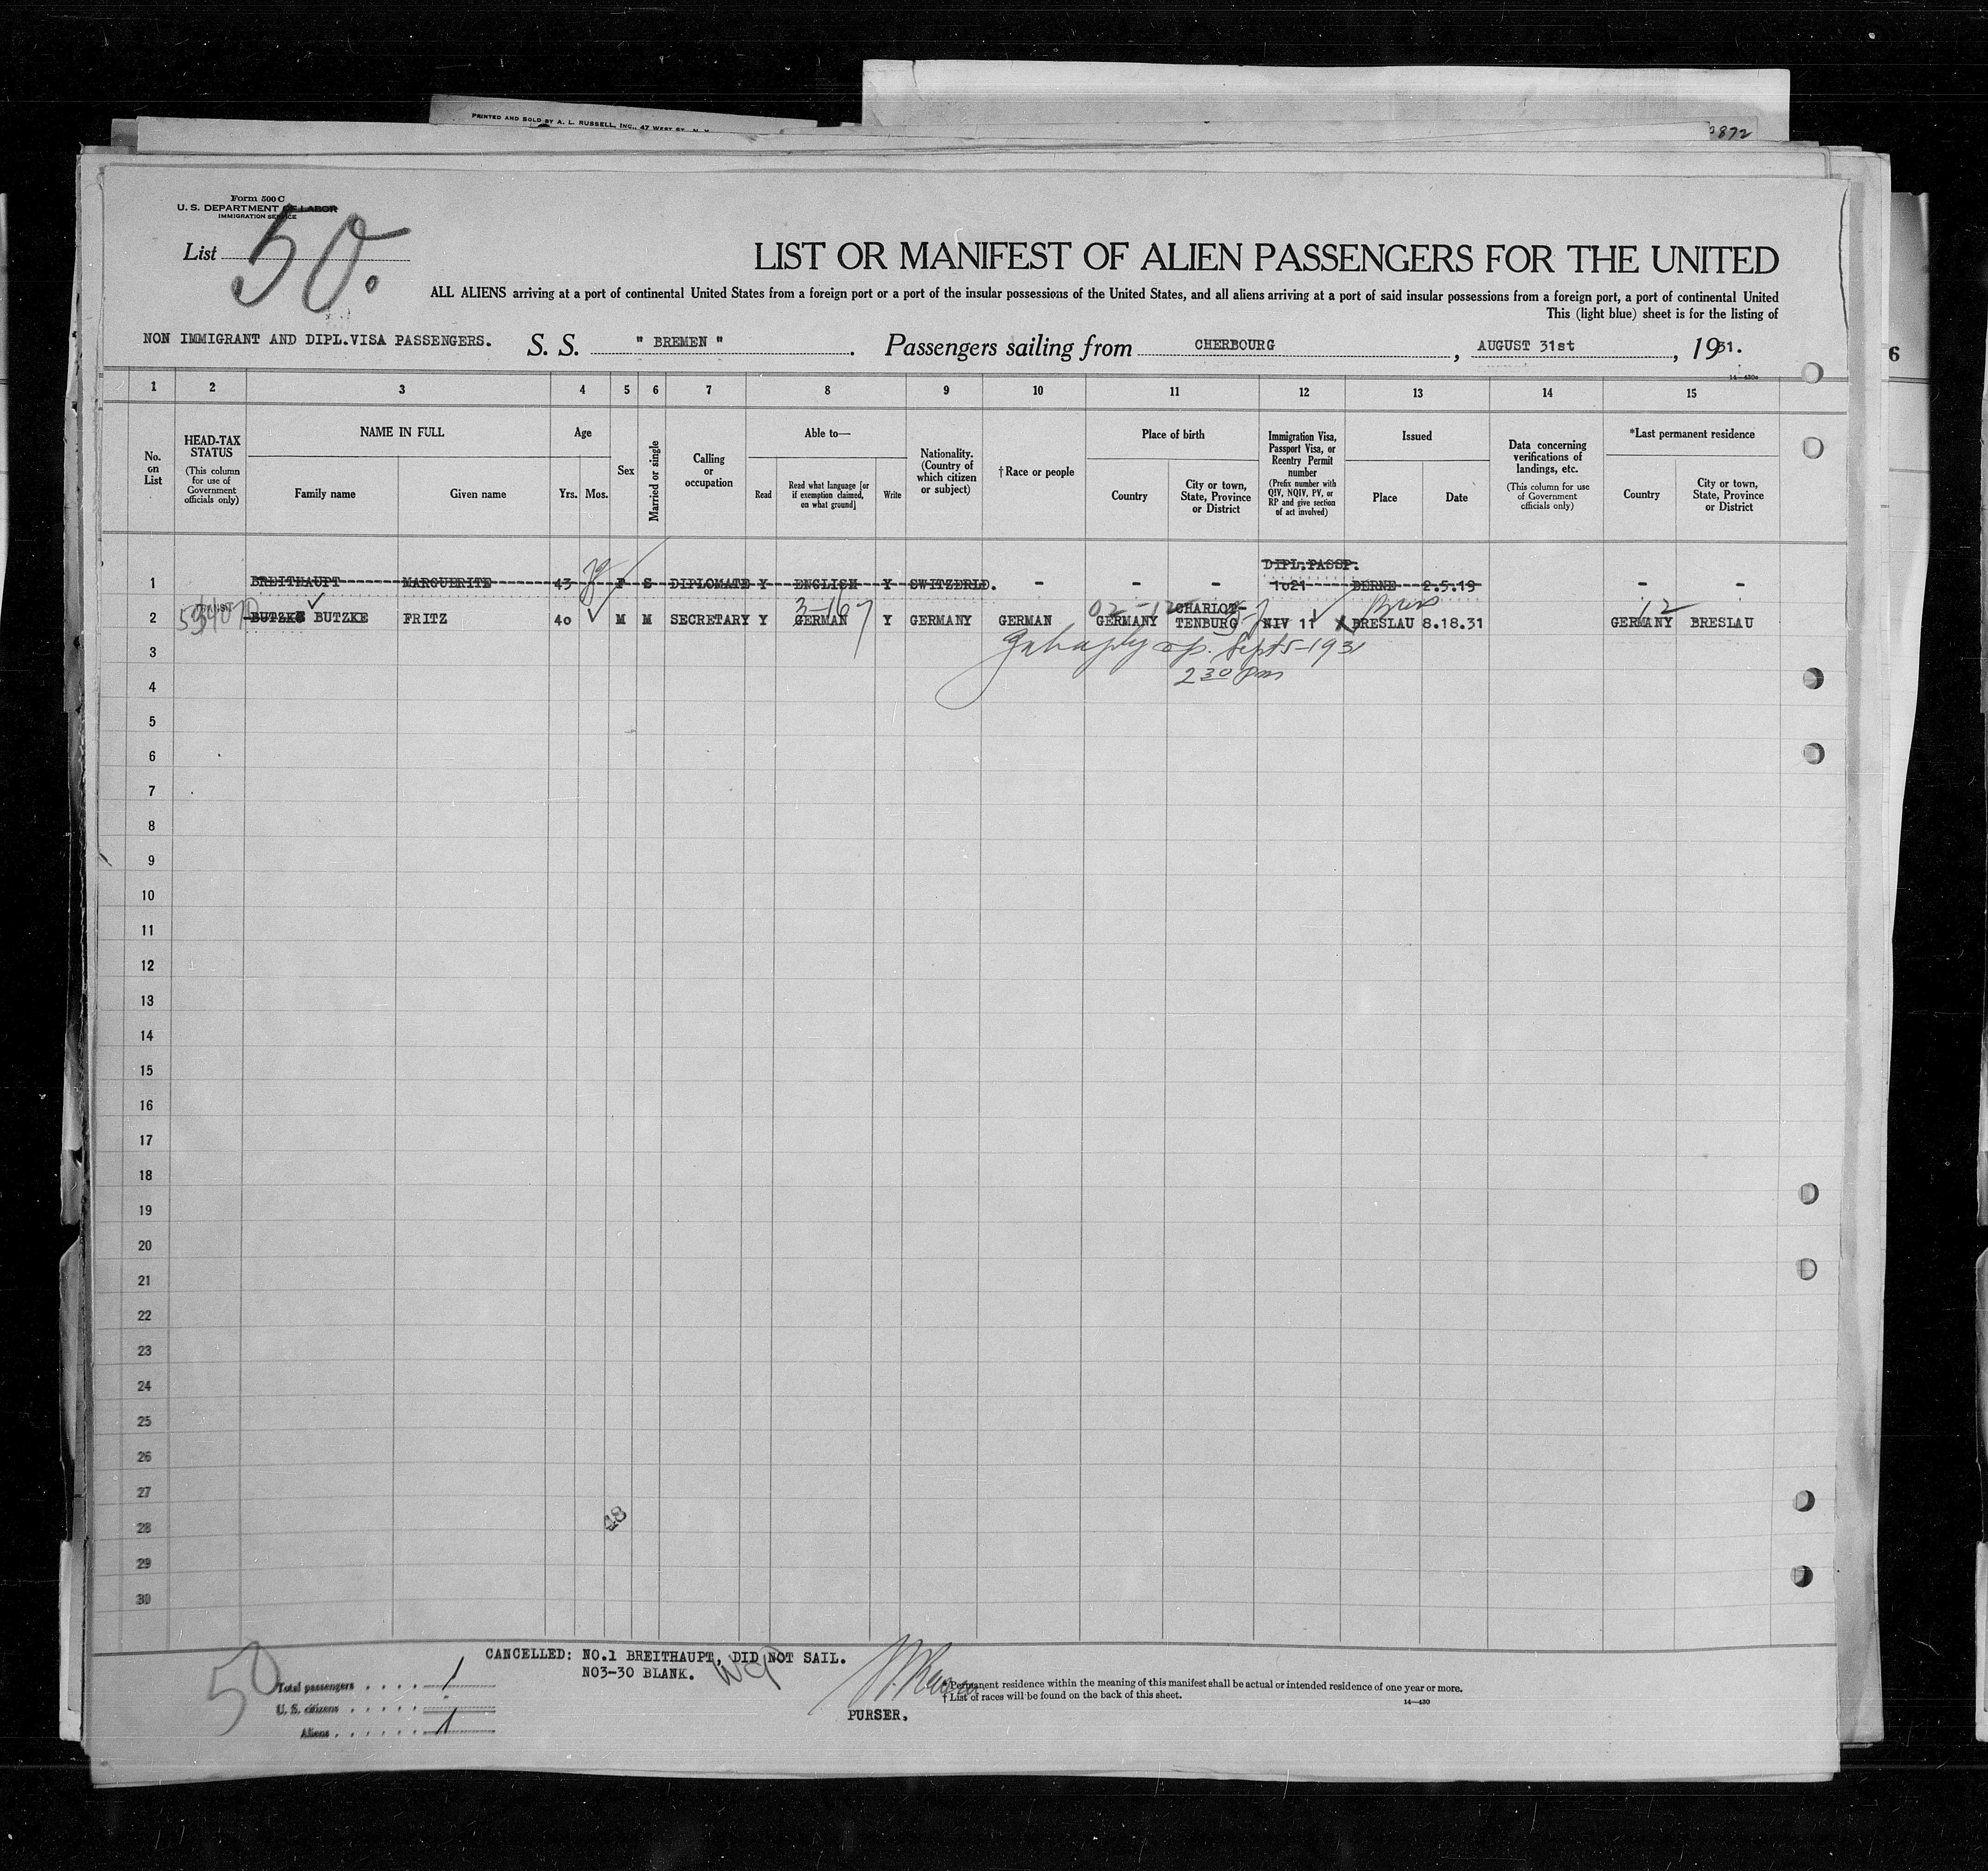 PRINTED AND SOLD BY A. L. RUSSELL, INC., 47 WEST ST. N. Y.
872
Form 500 C
U. S. DEPARTMENT OF LABOR
IMMIGRATION SERVICE
List 50.
LIST OR MANIFEST OF ALIEN PASSENGERS FOR THE UNITED
ALL ALIENS arriving at a port of continental United States from a foreign port or a port of the insular possessions of the United States, and all aliens arriving at a port of said insular possessions from a foreign port, a port of continental United
This (light blue) sheet is for the listing of
NON IMMIGRANT AND DIPL.VISA PASSENGERS. S. S. " BREMEN " . Passengers sailing from CHERBOURG , AUGUST 31st , 1931.
6
14—430a
1 2 3 4 5 6 7 8 9 10 11 12 13 14 15
No. on List
HEAD-TAX STATUS
(This column for use of Government officials only)
NAME IN FULL
Family name
Given name
Age
Yrs. Mos.
Sex
Married or single
Calling or occupation
Able to—
Read
Read what language [or if exemption claimed, on what ground]
Write
Nationality. (Country of which citizen or subject)
†Race or people
Place of birth
Country
City or town, State, Province or District
Immigration Visa, Passport Visa, or Reentry Permit number
(Prefix number with QIV, NQIV, PV, or RP and give section of act involved)
Issued
Place
Date
Data concerning verifications of landings, etc.
(This column for use of Government officials only)
*Last permanent residence
Country
City or town, State, Province or District
DIPL.PASSP.
1 BREITHAUPT MARGUERITE 43 F S DIPLOMATE Y ENGLISH Y SWITZERLD. - - - 1o21 BERNE 2.5.19 - -
TRANSIT
3-16 02-12 CHARLOT- 12
2 BUTZKE BUTZKE FRITZ 4o M M SECRETARY Y GERMAN Y GERMANY GERMAN GERMANY TENBURG NIV 11 BRESLAU 8.18.31 GERMANY BRESLAU
Sept 5-1931
3
2 30 pm
4
5
6
7
8
9
10
11
12
13
14
15
16
17
18
19
20
21
22
23
24
25
26
27
28
48
29
30
CANCELLED: NO.1 BREITHAUPT, DID NOT SAIL.
NO3-30 BLANK.
50
Total passengers . . . . 1
U. S. citizens . . . . .
Aliens . . . . . . 1
PURSER,
*Permanent residence within the meaning of this manifest shall be actual or intended residence of one year or more.
†List of races will be found on the back of this sheet.
14—430